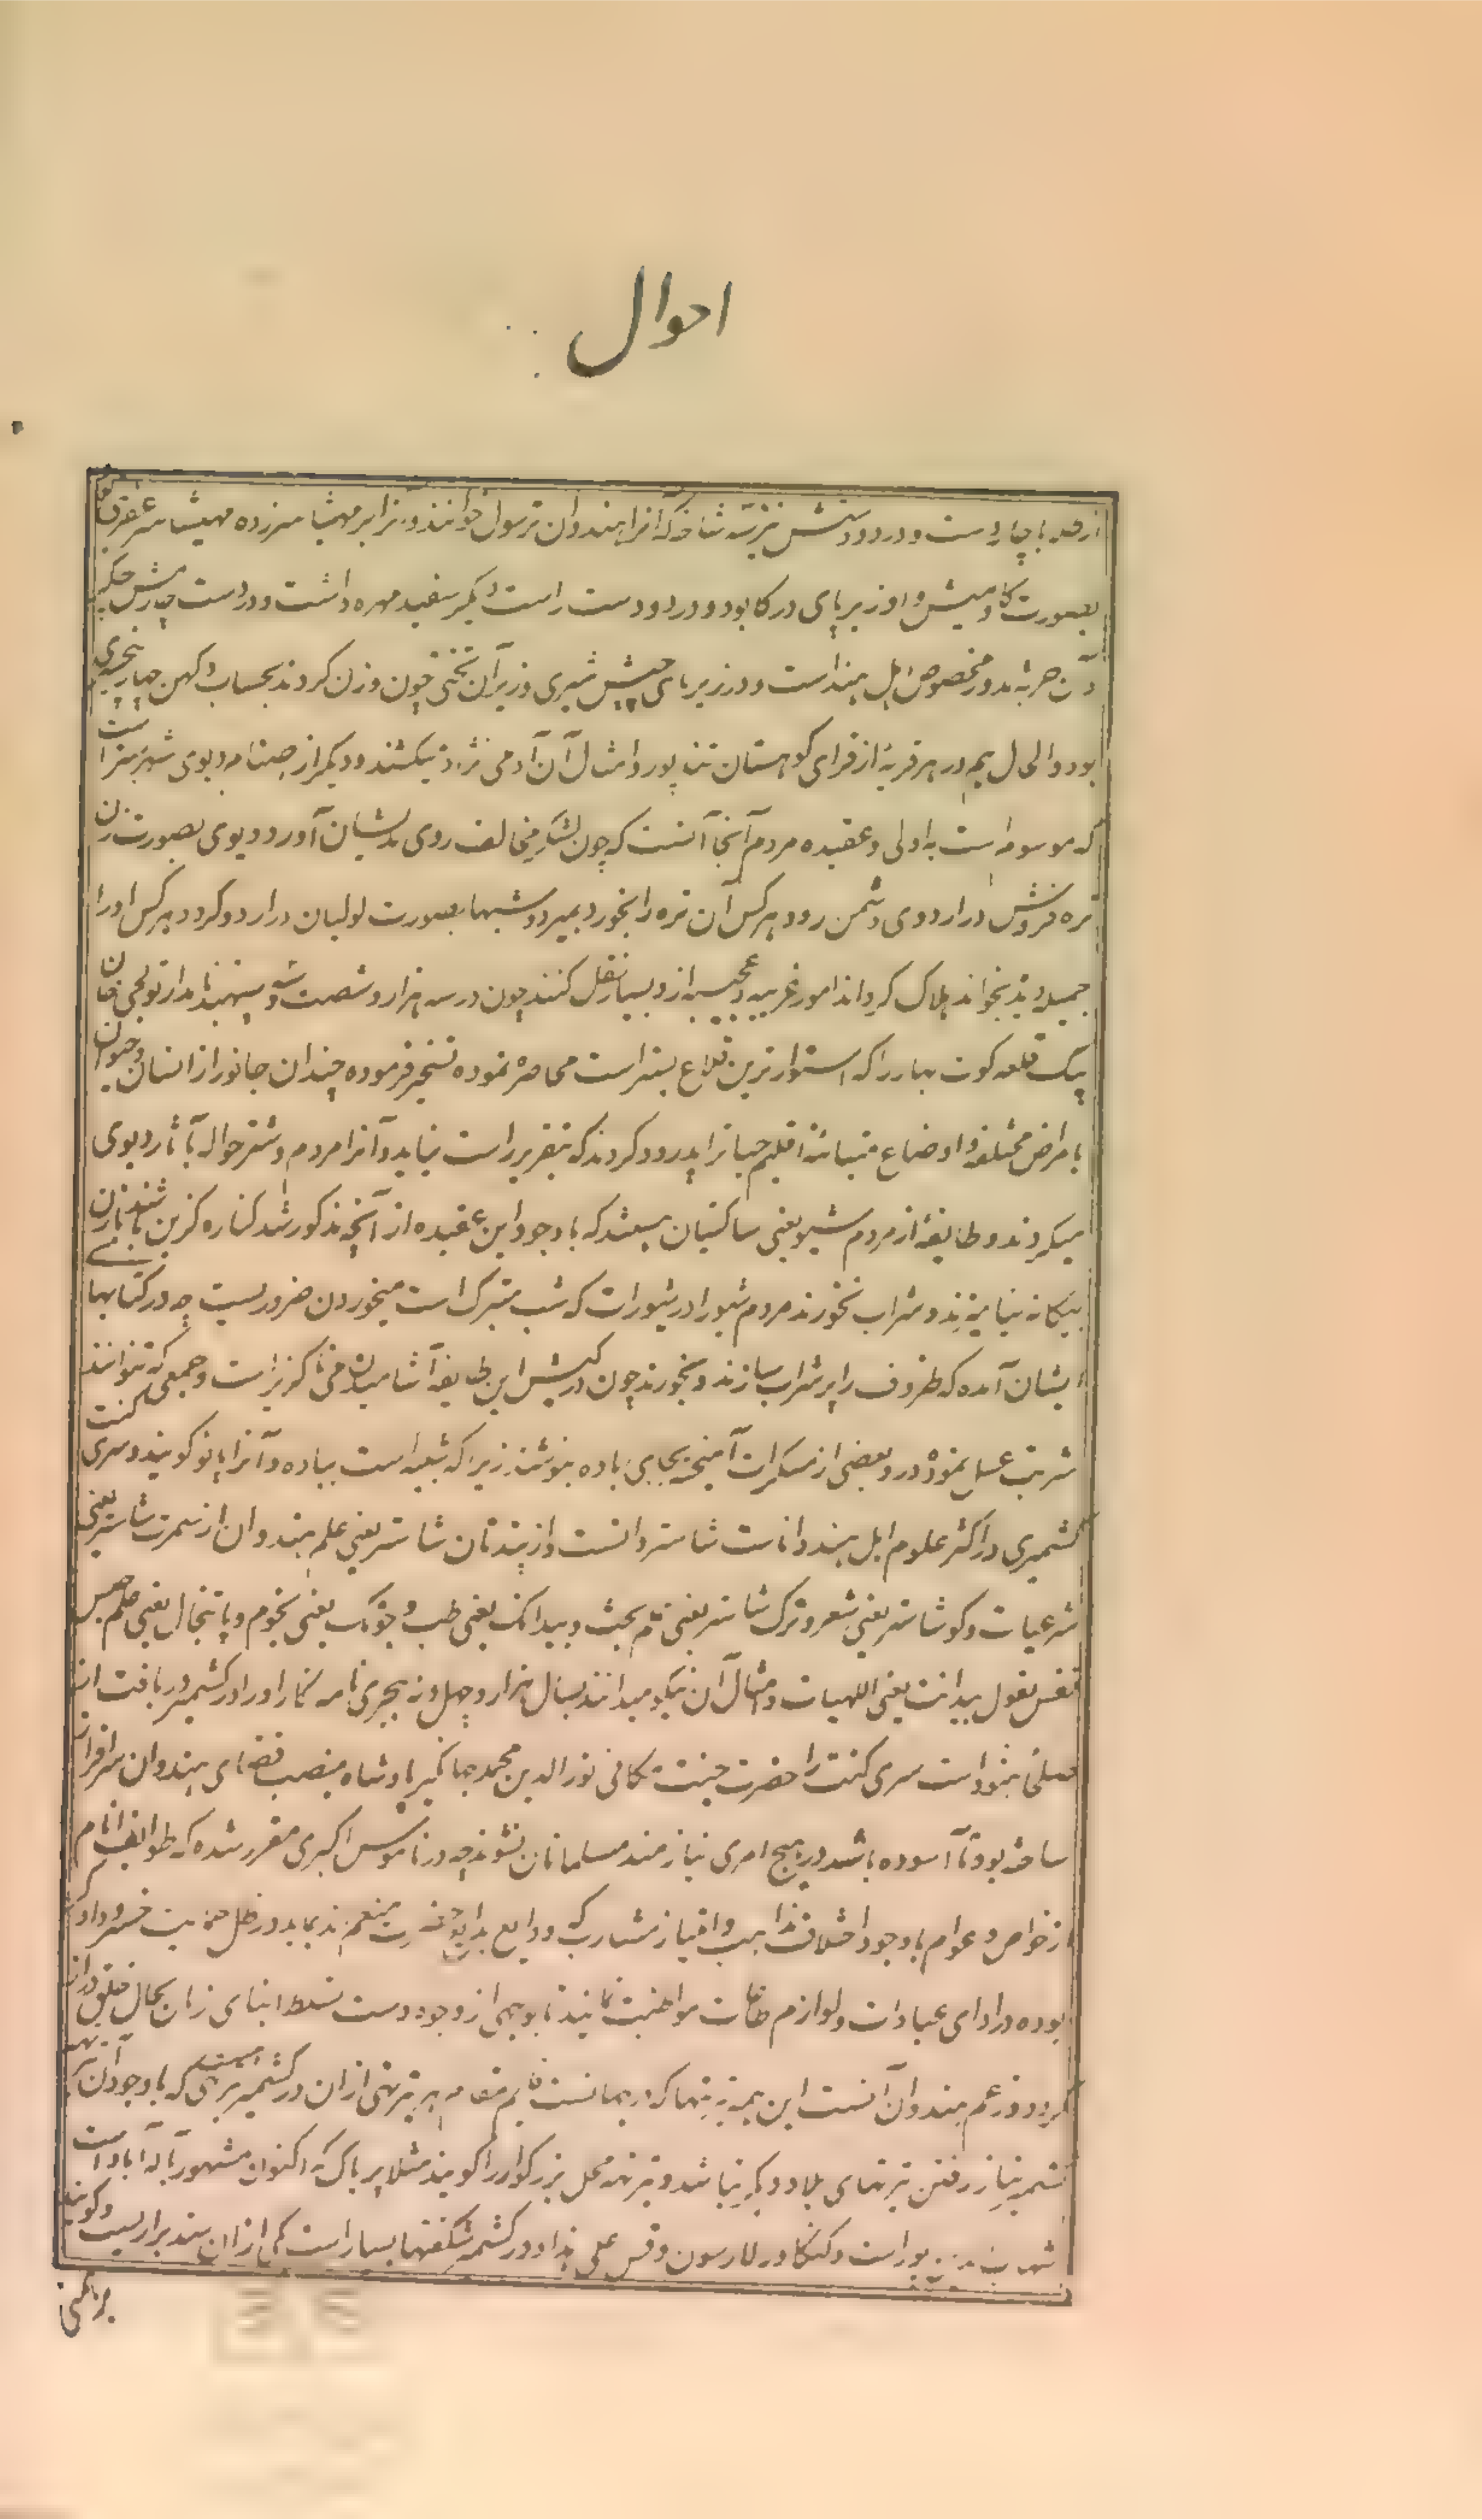 احوال
با چار دست و در دو دستش نیز سه شاخه که آنرا هندوان ترسول خوانند و نیز ابر مهشاسر زده مهیشاسر عفریتی
بصورت کاومیش و او زیر پای درکا بود و در دو دست راست دیکر سفید مهره داشت و در دست چارمش چکر
و آن حربه مدور مخصوص اهل هند است و در زیر پای شیری و زیر آن تختی چون وزن کردند بحساب دکهن چهار پنجسیری
بود و الحال هم در هر قریه از قرای کوهستان و امثال آن آدمی نژاد میکشند و دیکر از صنام دیوی شهر بستر است
که موسومه است به اولی و عقیده مردم آنجا آنست که چون لشکر مخالف روی بدیشان آورد دیوی بصورت زن
تره فروش در اردوی دشمن رود هر کس آن تره را بخورد بمیرد و شبها بصورت لولیان در اردو کردد هر کس او را
جمیله دیده بخواند هلاک کرداند امور غریبه و عجیبه ازو بسیار نقل کنند چون در سه هزار و شصت و سپهبد نامدار تولچی خان
بیک قلعه کوت بهار را که استوارترین قلاع بستر است محاصره نموده تسخیر فرموده چندان جانور از انسان و حیوان
بامراض مختلفه و اوضاع متباینه اقلیم حیات را پدرود کردند که بتقریر راست نیاید و آنرا مردم بستر حواله بآثار دیوی
میکردند و طایفهٔ از مردم شیو یعنی ساکتیان هستند که با وجود این عقیده از آنچه مذکور شد کناره کزین باشند با زن
بیکانه نیامیزند و شراب نخورند مردم شیو را در شیورات که شب متبرک است میخوردن ضروریست چه در کتابهای
ایشان آمده که ظروف را پر شراب سازند و بخورند چون در کیش این طایفه آشامیدن می ناکزیر است و جمعی که نتوانند
شربت عسل نموده درو بعضی از مسکرات آمیخته بجای باده بنوشند زیرا که شبیه است بباده و آنرا پانو کویند و سری کنت
کشمیری در اکثر علوم اهل هند داناست شاستر دانست و از پندتان شاستر یعنی علم هندوان از سمرت شاستر یعنی
شرعیات و کو شاستر یعنی شعر و ترک شاستر یعنی علم بحث و بیدانک یعنی طب و جوتک یعنی نجوم و پاتنجل یعنی علم حبس
نفس بقول بیدانت یعنی اللهیات و امثال آن نیکو میدانند بسال هزار و چهل و نه هجری نامه نکار او را در کشمیر دریافت از
فصلی بنمود است سری کنت را حضرت جنت مکانی نورالدین محمد جهانکیر پادشاه بمنصب قضای هندوان سرافراز
ساخته بود تا آسوده باشند و در هیچ امری نیازمند مسلمانان نشوند چه در ناموس اکبری مقرر شده که طوایف انام
از خواص و عوام با وجود اختلاف مذاهب و امتیاز مشارب که ودایع بدایع در ظل حمایت خسرو دادکر
بوده در ادای عبادات و لوازم طاعات مواظبت نمایند تا بوجهی از وجوه دست تسلط ابنای زمان بحال خلق دراز
نکردد و زعم هندوان آنست این همه تیرتهها که در جهانست قایم مقام هر تیرتهی ازان در کشمیر تیرتهی هست که با وجود آن تیرتهه
کشمیر نیاز رفتن تیرتهای بلاد دیکر نباشد و تیرتهه محل بزرکوار را کویند مثلا پرپاک که اکنون مشهور باله آباد است
شهاب الدین پور است و کنکا در لار سون و قس علی هذا و در کشمیر شکفتها بسیار است یکی ازان سند براریست و کویند
برهمنی